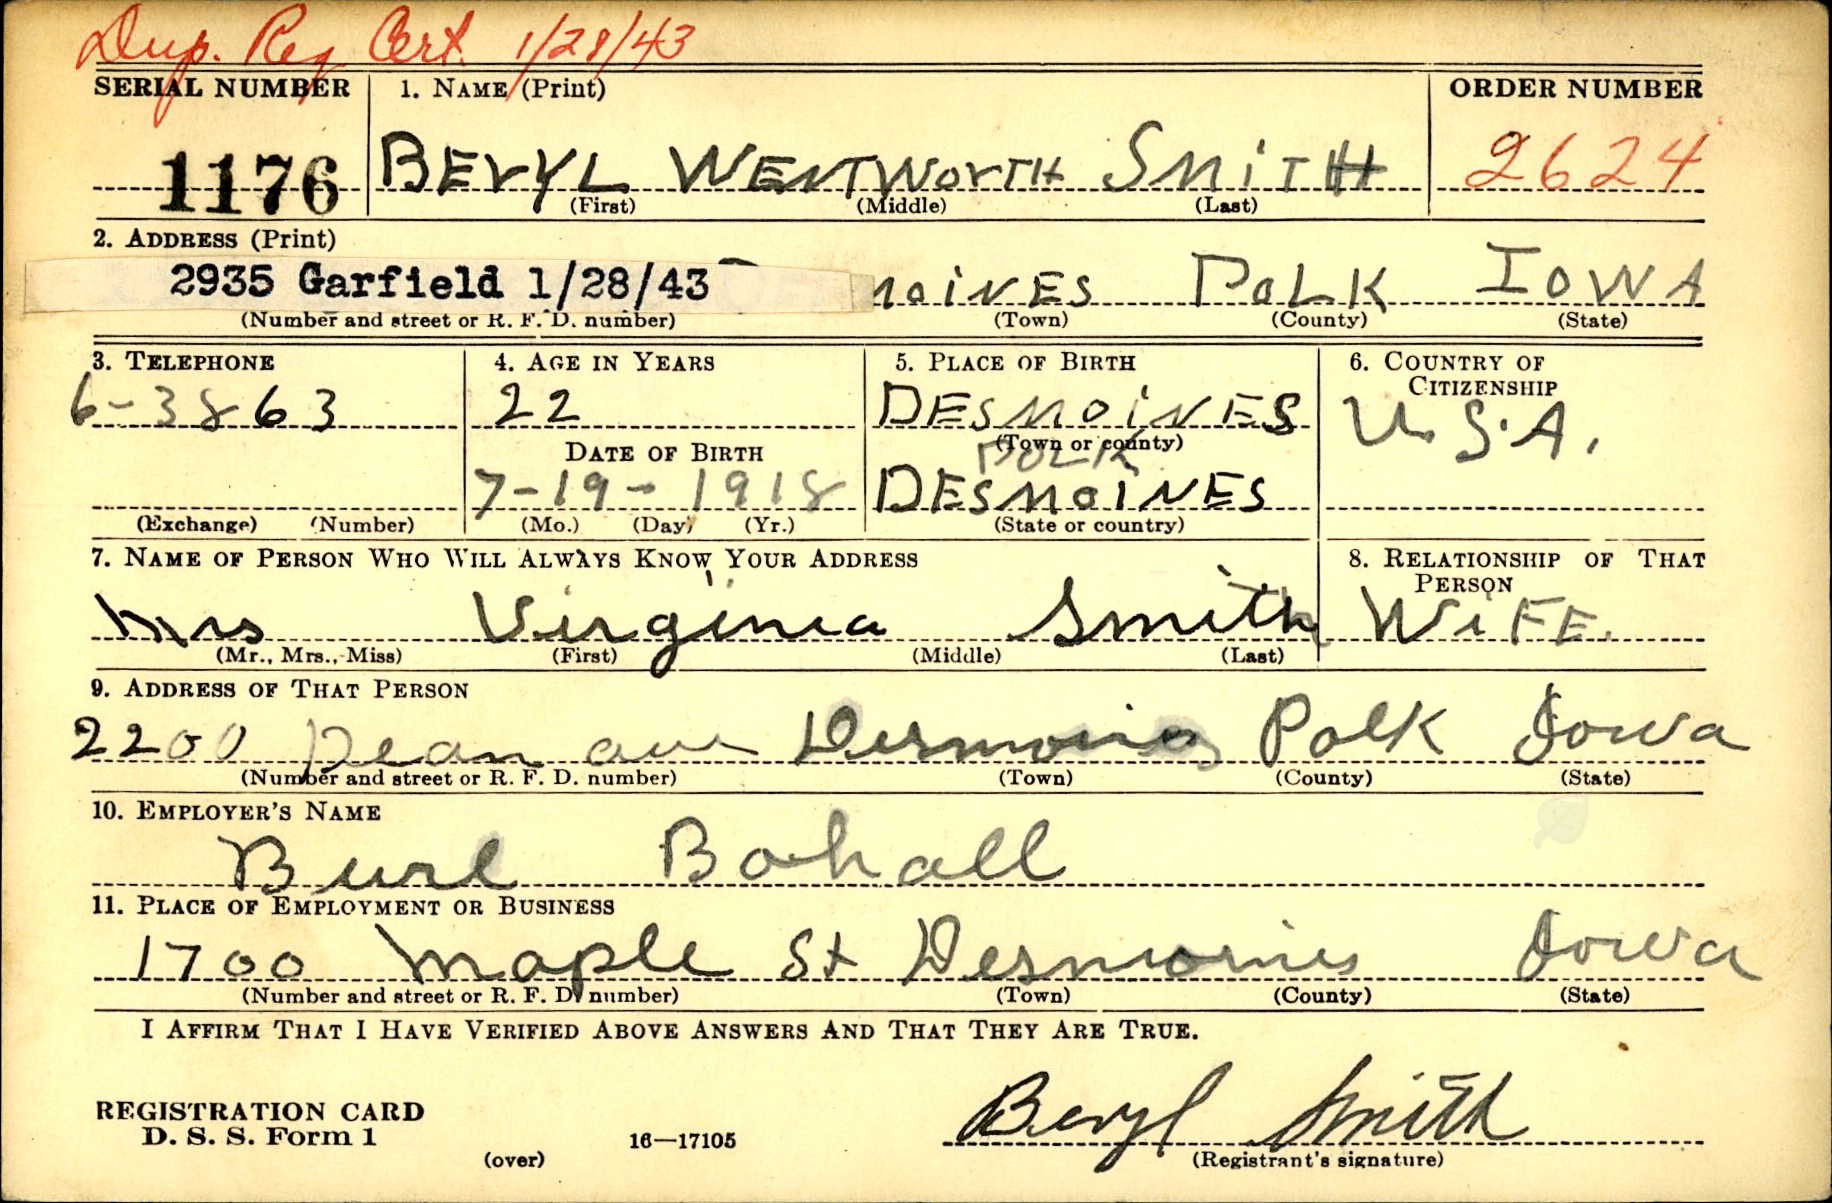 Dup. Reg Cert. 1/28/43
SERIAL NUMBER 1. NAME (Print) ORDER NUMBER
1176 BERYL WENTWORTH SMITH 2624
(First) (Middle) (Last)
2. ADDRESS (Print)
2935 Garfield 1/28/43 MOINES POLK IOWA
(Number and street or R. F. D. number) (Town) (County) (State)
3. TELEPHONE 4. AGE IN YEARS 5. PLACE OF BIRTH 6. COUNTRY OF CITIZENSHIP
6-3863 22 DESMOINES U.S.A.
(Town or county)
DATE OF BIRTH POLK
7-19-1918 DESMOINES
(Exchange) (Number) (Mo.) (Day) (Yr.) (State or country)
7. NAME OF PERSON WHO WILL ALWAYS KNOW YOUR ADDRESS 8. RELATIONSHIP OF THAT PERSON
Mrs Virginia Smith WiFE.
(Mr., Mrs., Miss) (First) (Middle) (Last)
9. ADDRESS OF THAT PERSON
2200 Dean ave Desmoines Polk Iowa
(Number and street or R. F. D. number) (Town) (County) (State)
10. EMPLOYER'S NAME
Burl Bahall
11. PLACE OF EMPLOYMENT OR BUSINESS
1700 Maple St Desmoines Iowa
(Number and street or R. F. D. number) (Town) (County) (State)
I AFFIRM THAT I HAVE VERIFIED ABOVE ANSWERS AND THAT THEY ARE TRUE.
REGISTRATION CARD
D. S. S. Form 1 16—17105 Beryl Smith
(over) (Registrant's signature)